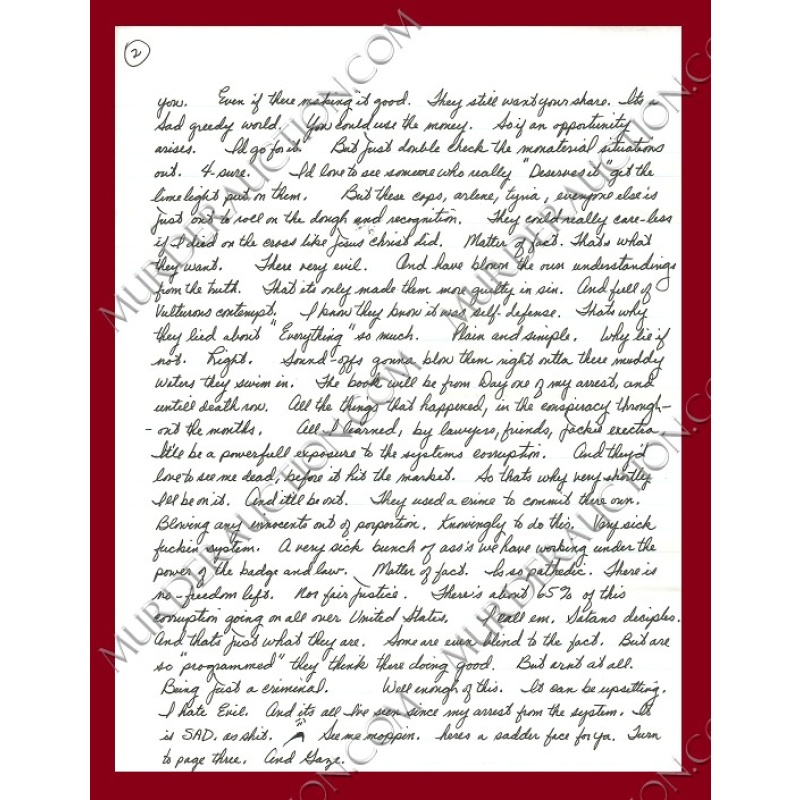 2
you. Even if there making it good. They still want your share. Its a
sad greedy world. You could use the money. So if an opportunity
arises. I'd go for it. But just double check the monaterial situations
out. 4-sure. I'd love to see someone who really "Deserves it" get the
lime light put on them. But these cops, arlene, tyria, everyone else is
just out to roll on the dough and recognition. They could really care-less
if I died on the cross like Jesus christ did. Matter of fact. Thats what
they want. There very evil. And have blown the own understandings
from the truth. That its only made them more guilty in sin. And full of
Vulturous contempt. I know they know it was self-defense. Thats why
they lied about "Everything" so much. Plain and simple. Why lie if
not. Right. Sound-offs gonna blow them right outta there muddy
waters they swim in. The book will be from Day one of my arrest, and
untill death row. All the things that happened, in the conspiracy through-
-out the months. All I learned, by lawyers, friends, Jackie exectra
It'll be a powerfull exposure to the systems corruption. And they'd
love to see me dead, before it hit the market. So thats why very shortly
I'll be on it. And itll be out. They used a crime to commit there own.
Blowing any innocents out of porportion. Knowingly to do this. Very sick
fuckin system. A very sick bunch of ass's we have working under the
power of the badge and law. Matter of fact. Is so pathedic. There is
no-freedom left. Nor fair justice. There's about 65% of this
corruption going on all over United States. I call em. Satans deciples.
And thats just what they are. Some are even blind to the fact. But are
so "programmed" they think there doing good. But arnt at all.
Being just a criminal. Well enough of this. It can be upsetting.
I hate Evil. And its all I've seen since my arrest from the system. It
is SAD. as shit. See me moppin. heres a sadder face for ya. Turn
to page three. And Gaze.
MURDERAUCTION.COM